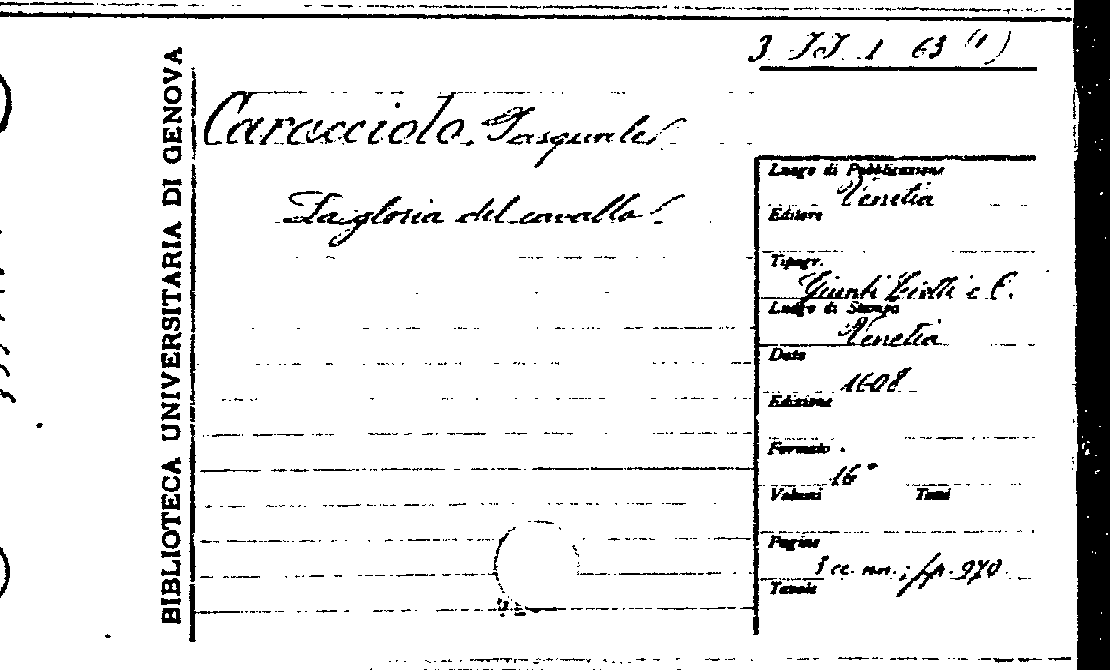 3 JJ 1 63 (1)
BIBLIOTECA UNIVERSITARIA DI GENOVA
Caracciolo Pasquale
La gloria del cavallo
Luogo di Pubblicazione
Venetia
Editore
Tipogr.
Giunti e C.
Luogo di Stampa
Venetia
Data
1608
Edizione
Formato
16°
Volumi Tomi
Pagine
cc. nn.; pp. 970
Tavole